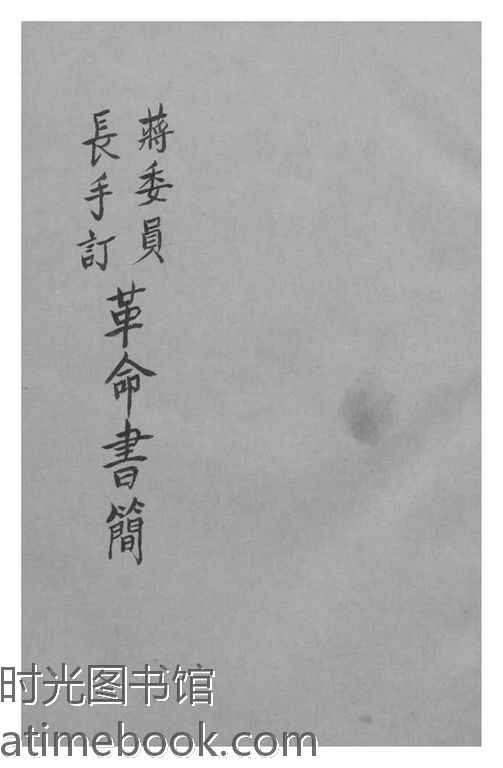 蔣委員
長手訂
革命書簡
时光图书馆
atimebook.com